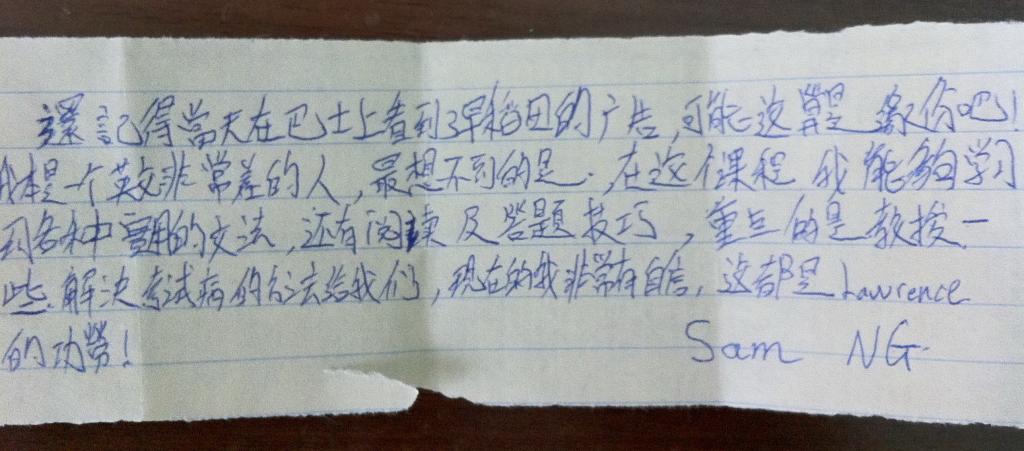 還記得當天在巴士上看到早稻田的广告,可能这算是緣份吧!
我本是一个英文非常差的人,最想不到的是.在这个课程我能夠学习
到各种實用的文法,还有阅读及答题技巧,重点的是教授一
些.解决考試病的方法给我们,现在的我非常有自信,这都是Lawrence
的功勞!
Sam NG.